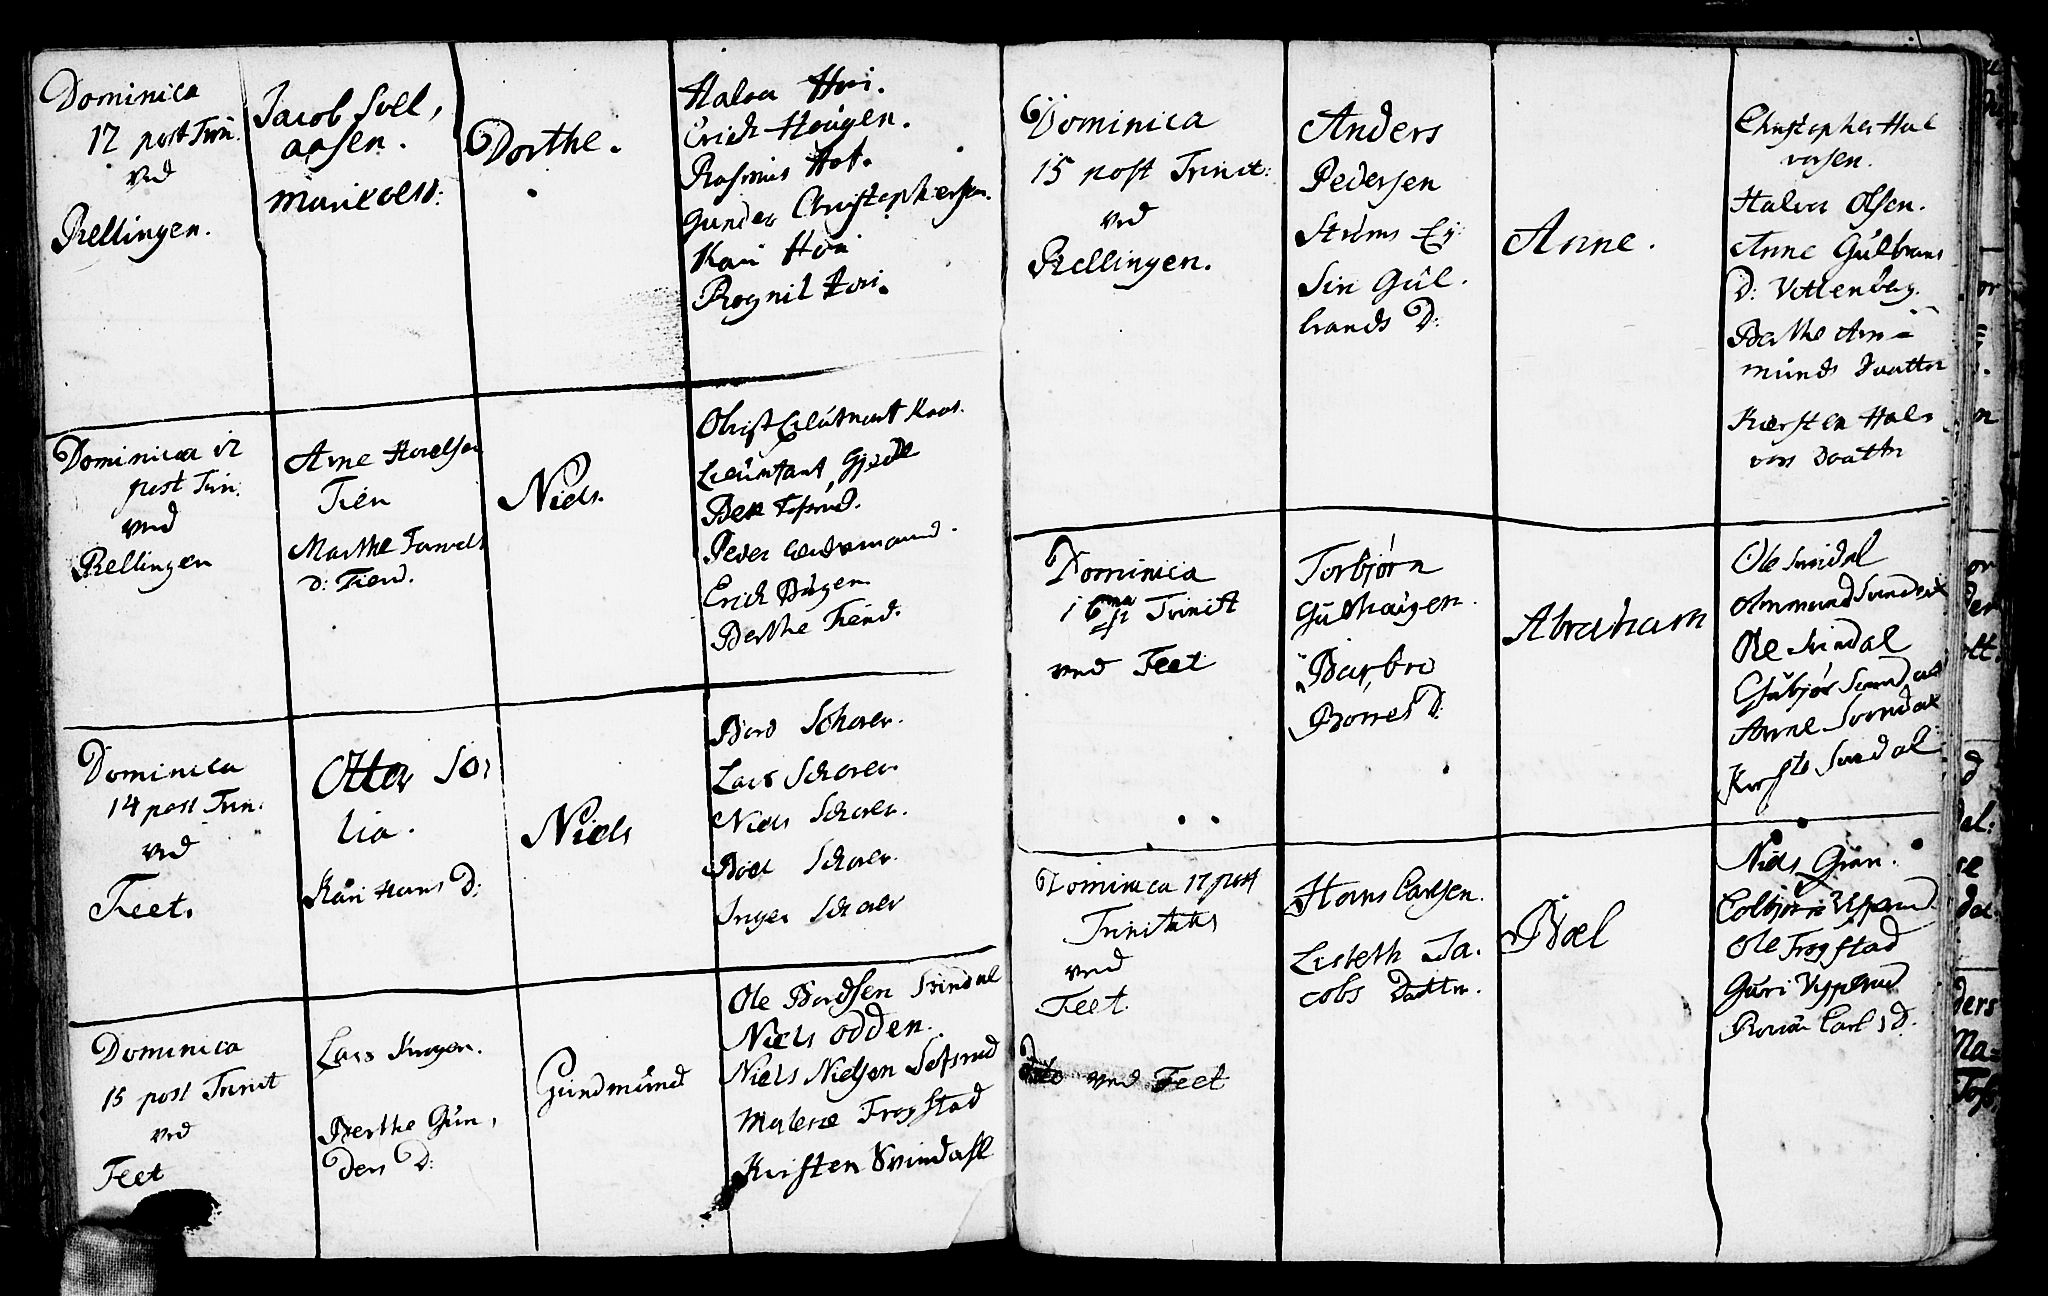 Dominica
17 post Trin.
ved
Rellingen.
Jacob Soll,
aasen.
Marikolsd:
Dorthe.
Halvor Hvi.
Erich Hougen.
Rasmus Hof.
Gunder Christophersen.
Kari Hvi
Rognil Hvi.
Dominica 12
post Trin.
ved
Rellingen
Arne
Tien
Marthe
D: Tiend.
Niels.
Obrist Lieutnant Kaas.
Lieutnant Gjede
Peder
Erich Haugen
Berthe Tiend.
Dominica
14 post Trin.
ved
Feet.
Otter So,
lia.
Kari Hans D:
Niels
Bord Scholer.
Lars Schorer.
Niels Schorer.
Boel Schorer.
Inger Schorer
Dominica
15 post Trinit
ved
Feet
Lars
Berthe Gun,
ders D:
Gundmund
Ole Bordsen Svindal
Niels Odden.
Niels Nielsen Sofsrud
Malene Frogstad
Kirsten Svindahl
Dominica
15 post Trinit:
ved
Rellingen.
Anders
Pedersen
Strøms Ey:
Siri Gul.
brands D:
Anne.
Christopher Hal
vorsen.
Halvor Olsen.
Anne Gulbrans
D: Vettenberg.
Berthe Am=
munds Daatter
Kiersten Hal=
vors Daatter
Dominica
16 Trinit
ved Feet
Torbjørn
Gulshaugen.
Barbro
Borres D:
Abraham
Ole Svindal
Ommund Svindal
Ole Svindal
Gubjør Svindal
Anne Svindal
Kirste Svindal
Dominica 17 post
Trinitatis
ved
Feet
Hans Carlsen.
Lisbeth Ja.
cobs Daatter.
Boel
Niels Grøn.
Colbjørn Ysperud
Ole Frogstad
Guri Ysperud
Carls D.
Dito ved Feet